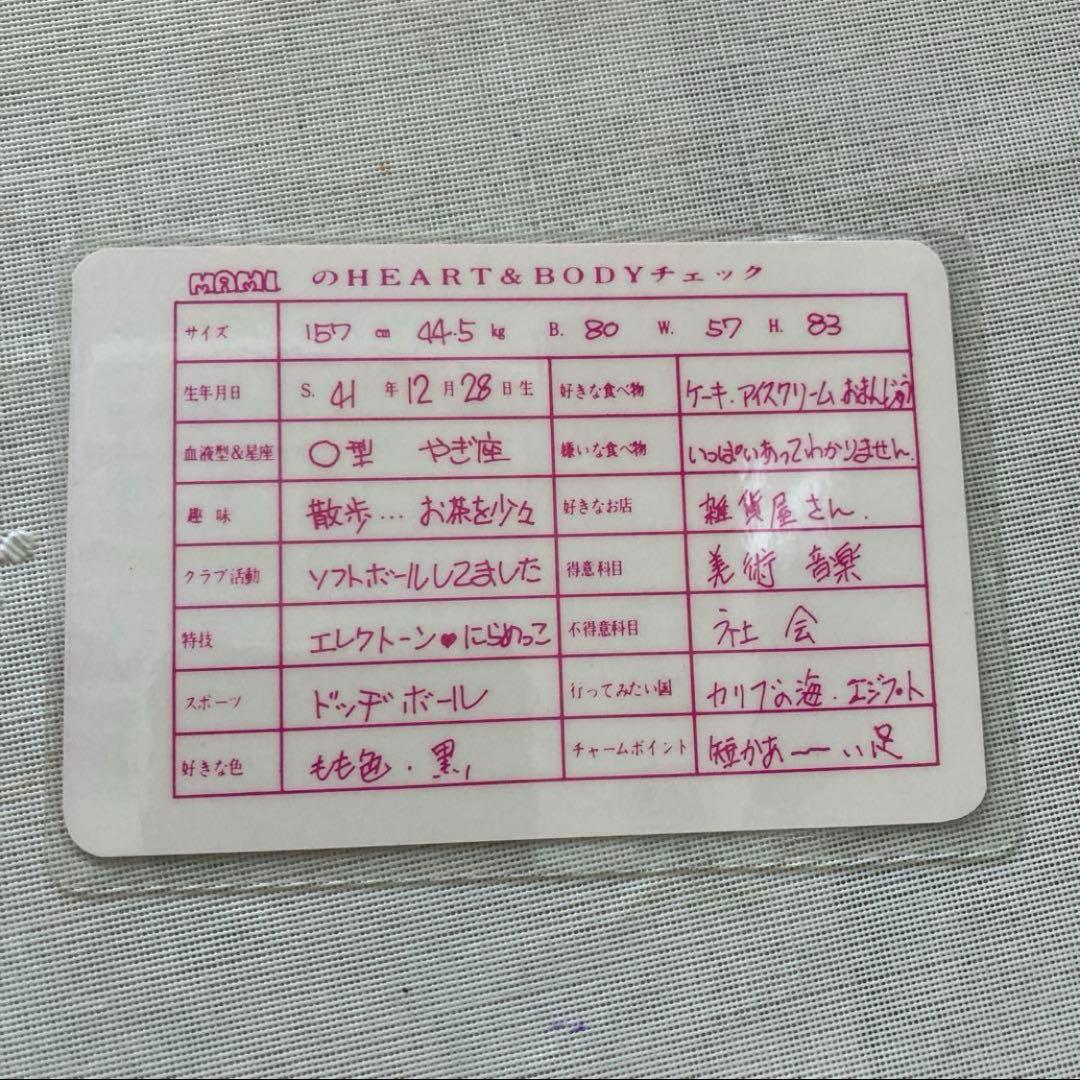 MAMI のHEART&BODYチェック
サイズ 157 cm 44.5 kg B. 80 W. 57 H. 83
生年月日 S. 41 年 12 月 28 日生 好きな食べ物 ケーキ.アイスクリーム おまんじゅう
血液型&星座 O型 やぎ座 嫌いな食べ物 いっぱいあってわかりません.
趣味 散歩… お茶を少々 好きなお店 雑貨屋さん.
クラブ活動 ソフトボールしてました 得意科目 美術 音楽
特技 エレクトーン♥にらめっこ 不得意科目 社会
スポーツ ドッヂボール 行ってみたい国 カリブの海.エジプト
好きな色 もも色.黒, チャームポイント 短かあ〜い足